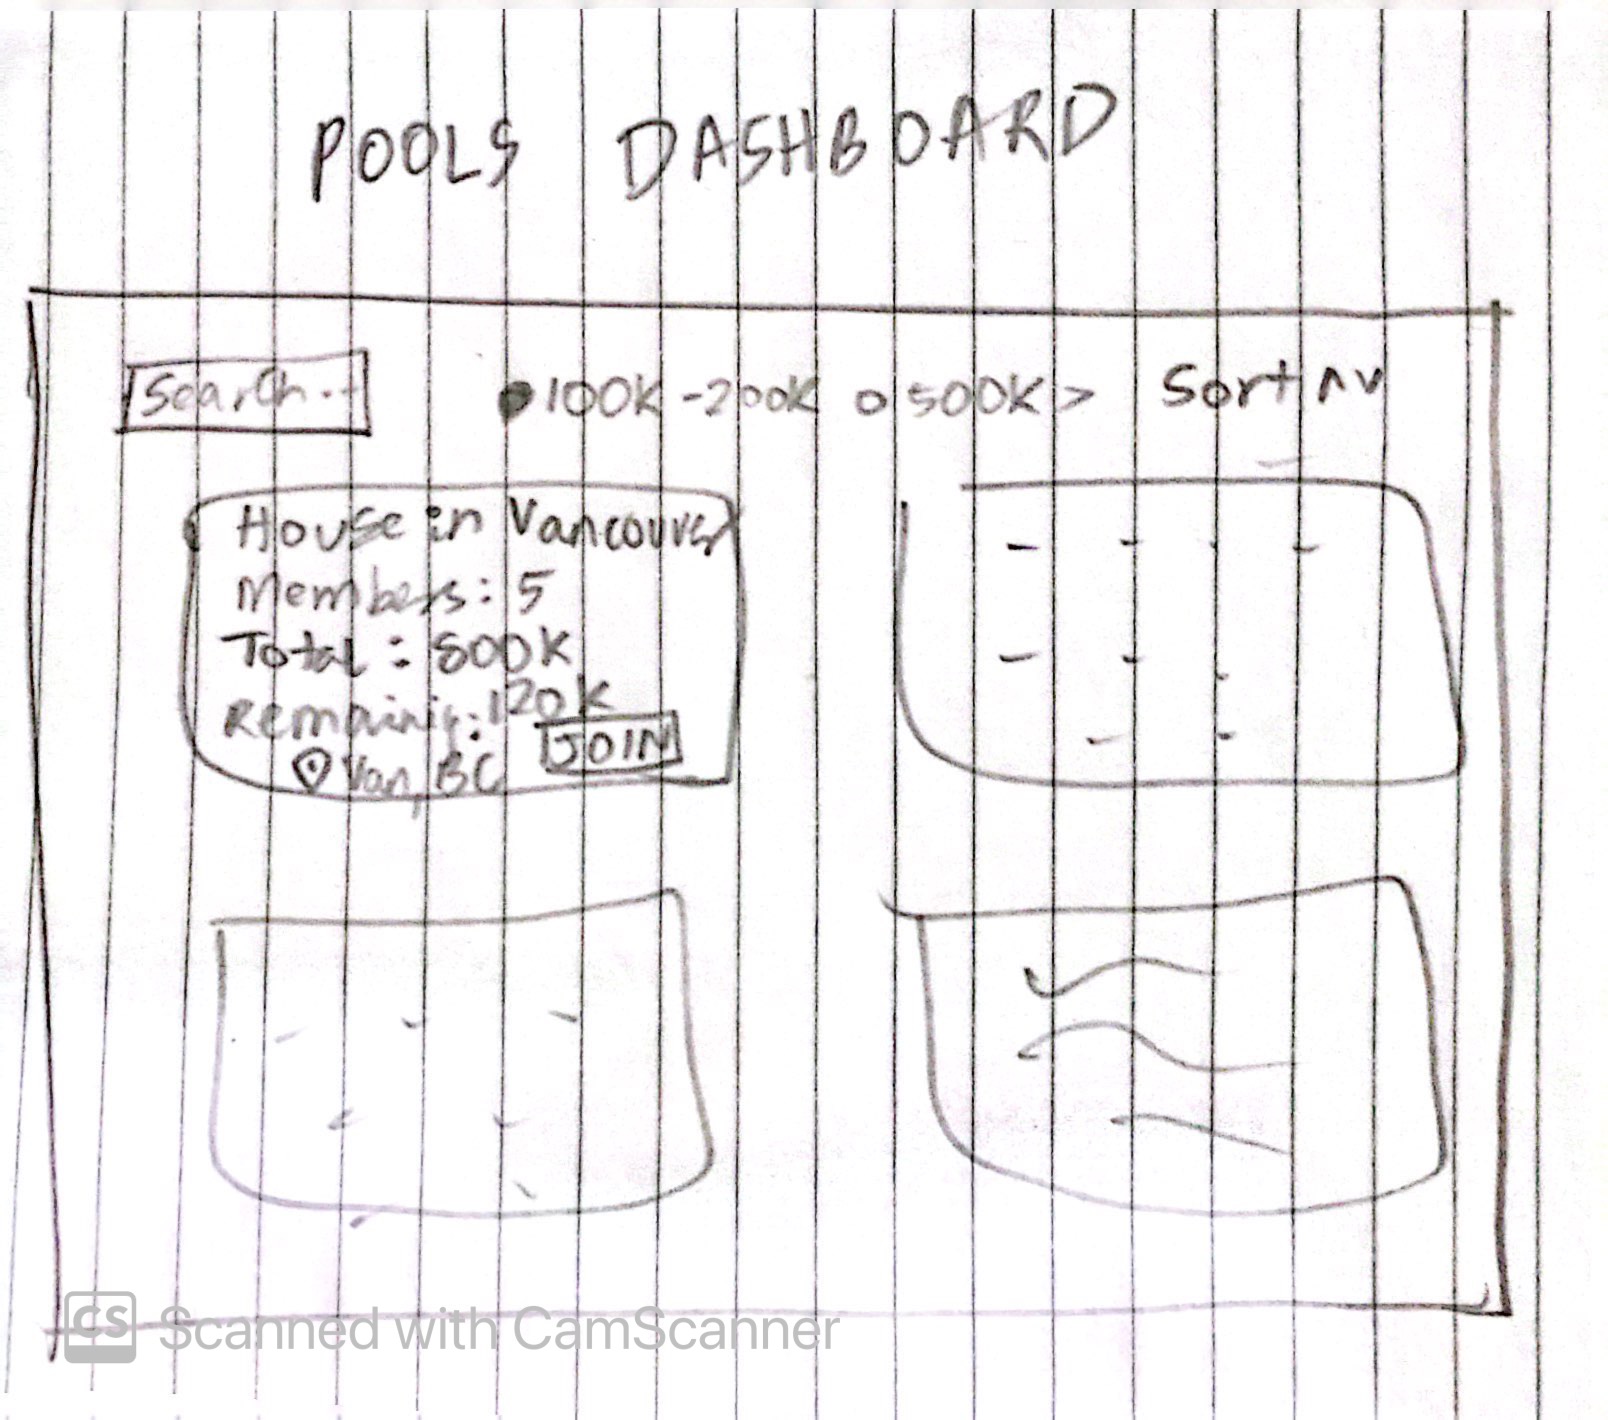 POOLS DASHBOARD
Search..
100K-200K
500K>
Sort
House in Vancouver
Members: 5
Total: 800K
Remaining: 120K
JOIN
Van, BC
CS Scanned with CamScanner